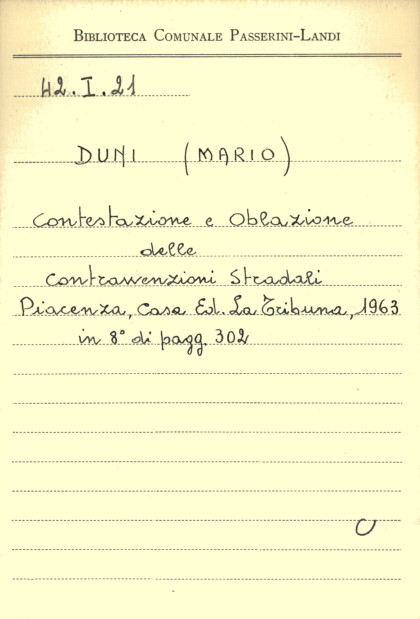 BIBLIOTECA COMUNALE PASSERINI-LANDI
42.I.21
DUNI (MARIO)
Contestazione e Oblazione
delle
Contravvenzioni Stradali
Piacenza, Casa Ed. La Tribuna, 1963
in 8° di pagg. 302
C